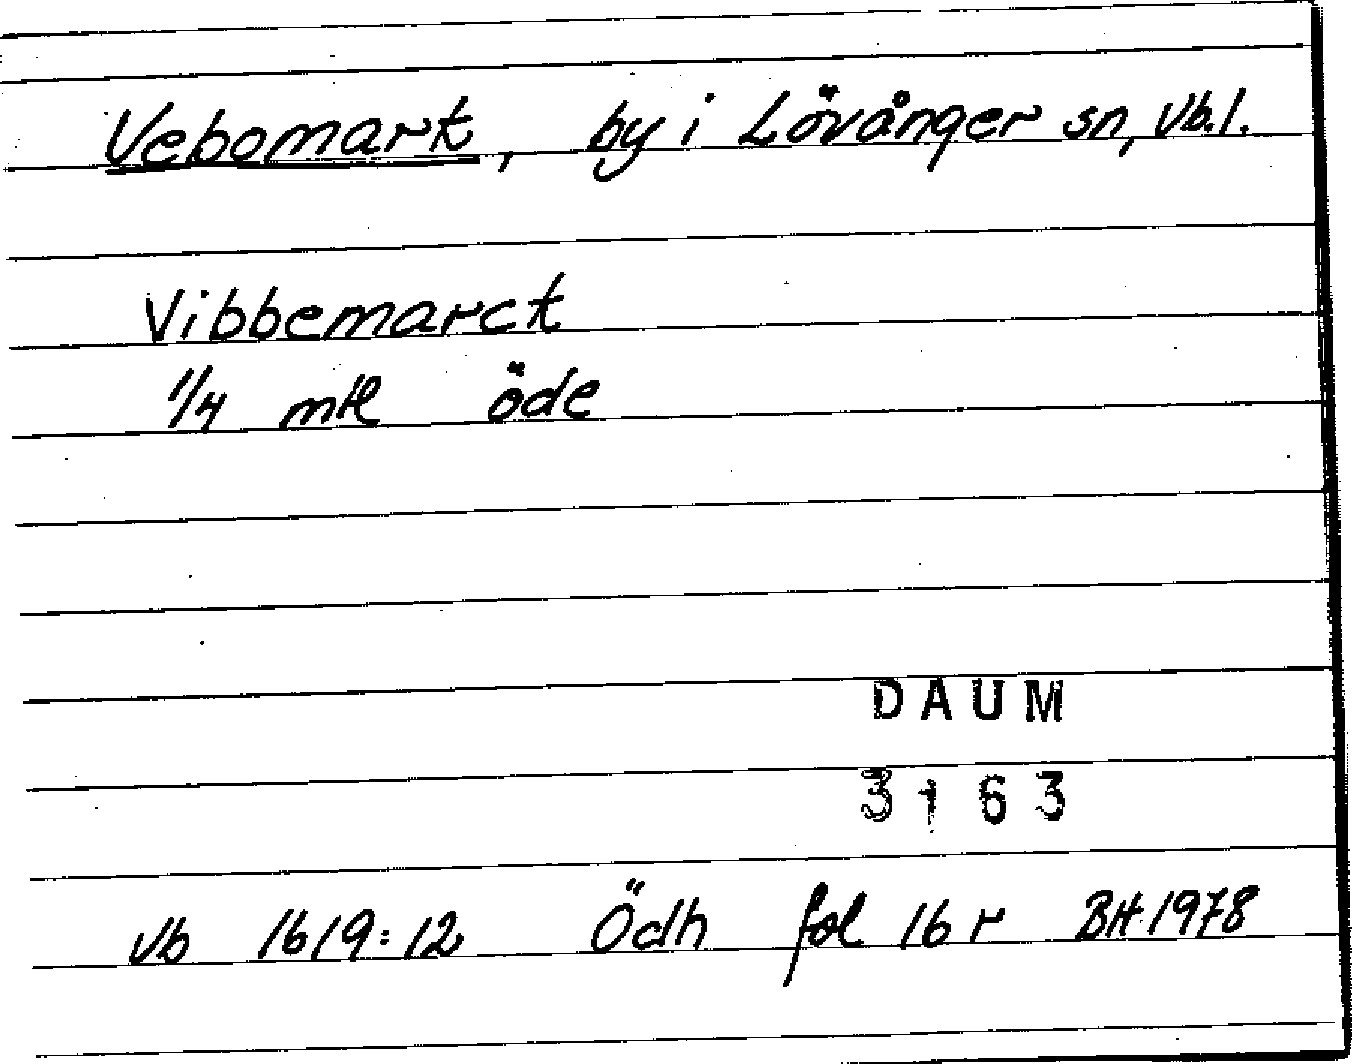 Vebomark, by i Lövånger sn, Vb.l.
Vibbemarck
1/4 mtl öde
DAUM
3163
Vb 1619:12 Ödh fol 16 r BH.1978